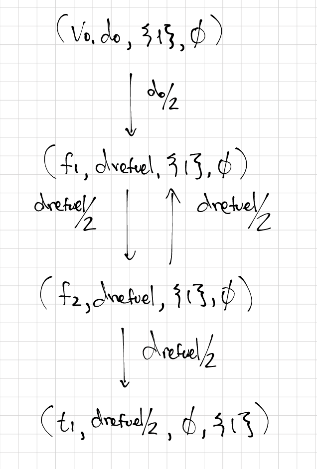 (v0, d0, {1}, ϕ)
d0/2
(f1, drefuel, {1}, ϕ)
drefuel/2 drefuel/2
(f2, drefuel, {1}, ϕ)
drefuel/2
(t1, drefuel/2, ϕ, {1})